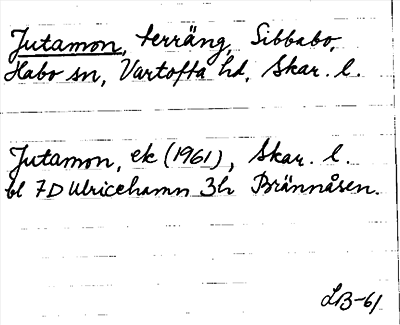 Jutamon, terräng, Sibbabo,
Habo sn, Vartofta hd, Skar. l.
Jutamon, ek (1961), Skar. l.
bl 7D Ulricehamn 3h Brännåsen.
LB-61